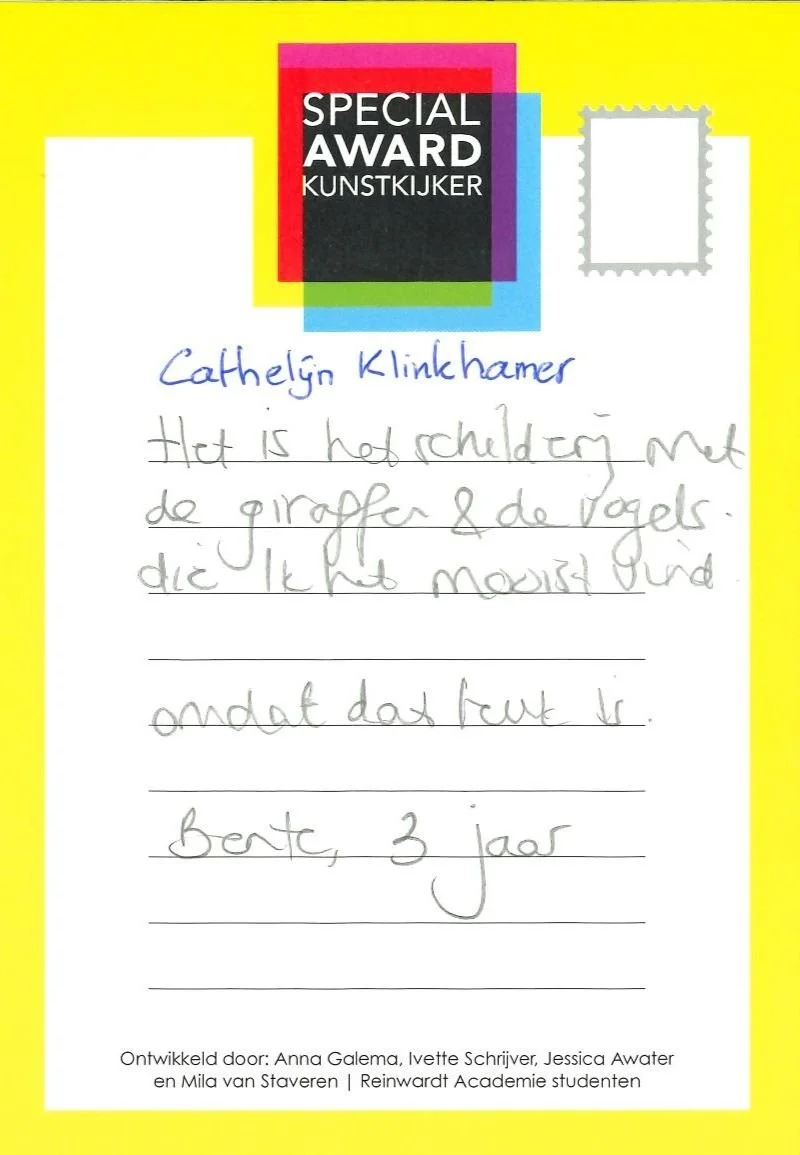 SPECIAL
AWARD
KUNSTKIJKER
Cathelijn Klinkhamer
Het is het schilderij met
de giraffen & de vogels.
die ik het mooist vind
omdat dat leuk is.
Bente, 3 jaar
Ontwikkeld door: Anna Galema, Ivette Schrijver, Jessica Awater
en Mila van Staveren | Reinwardt Academie studenten